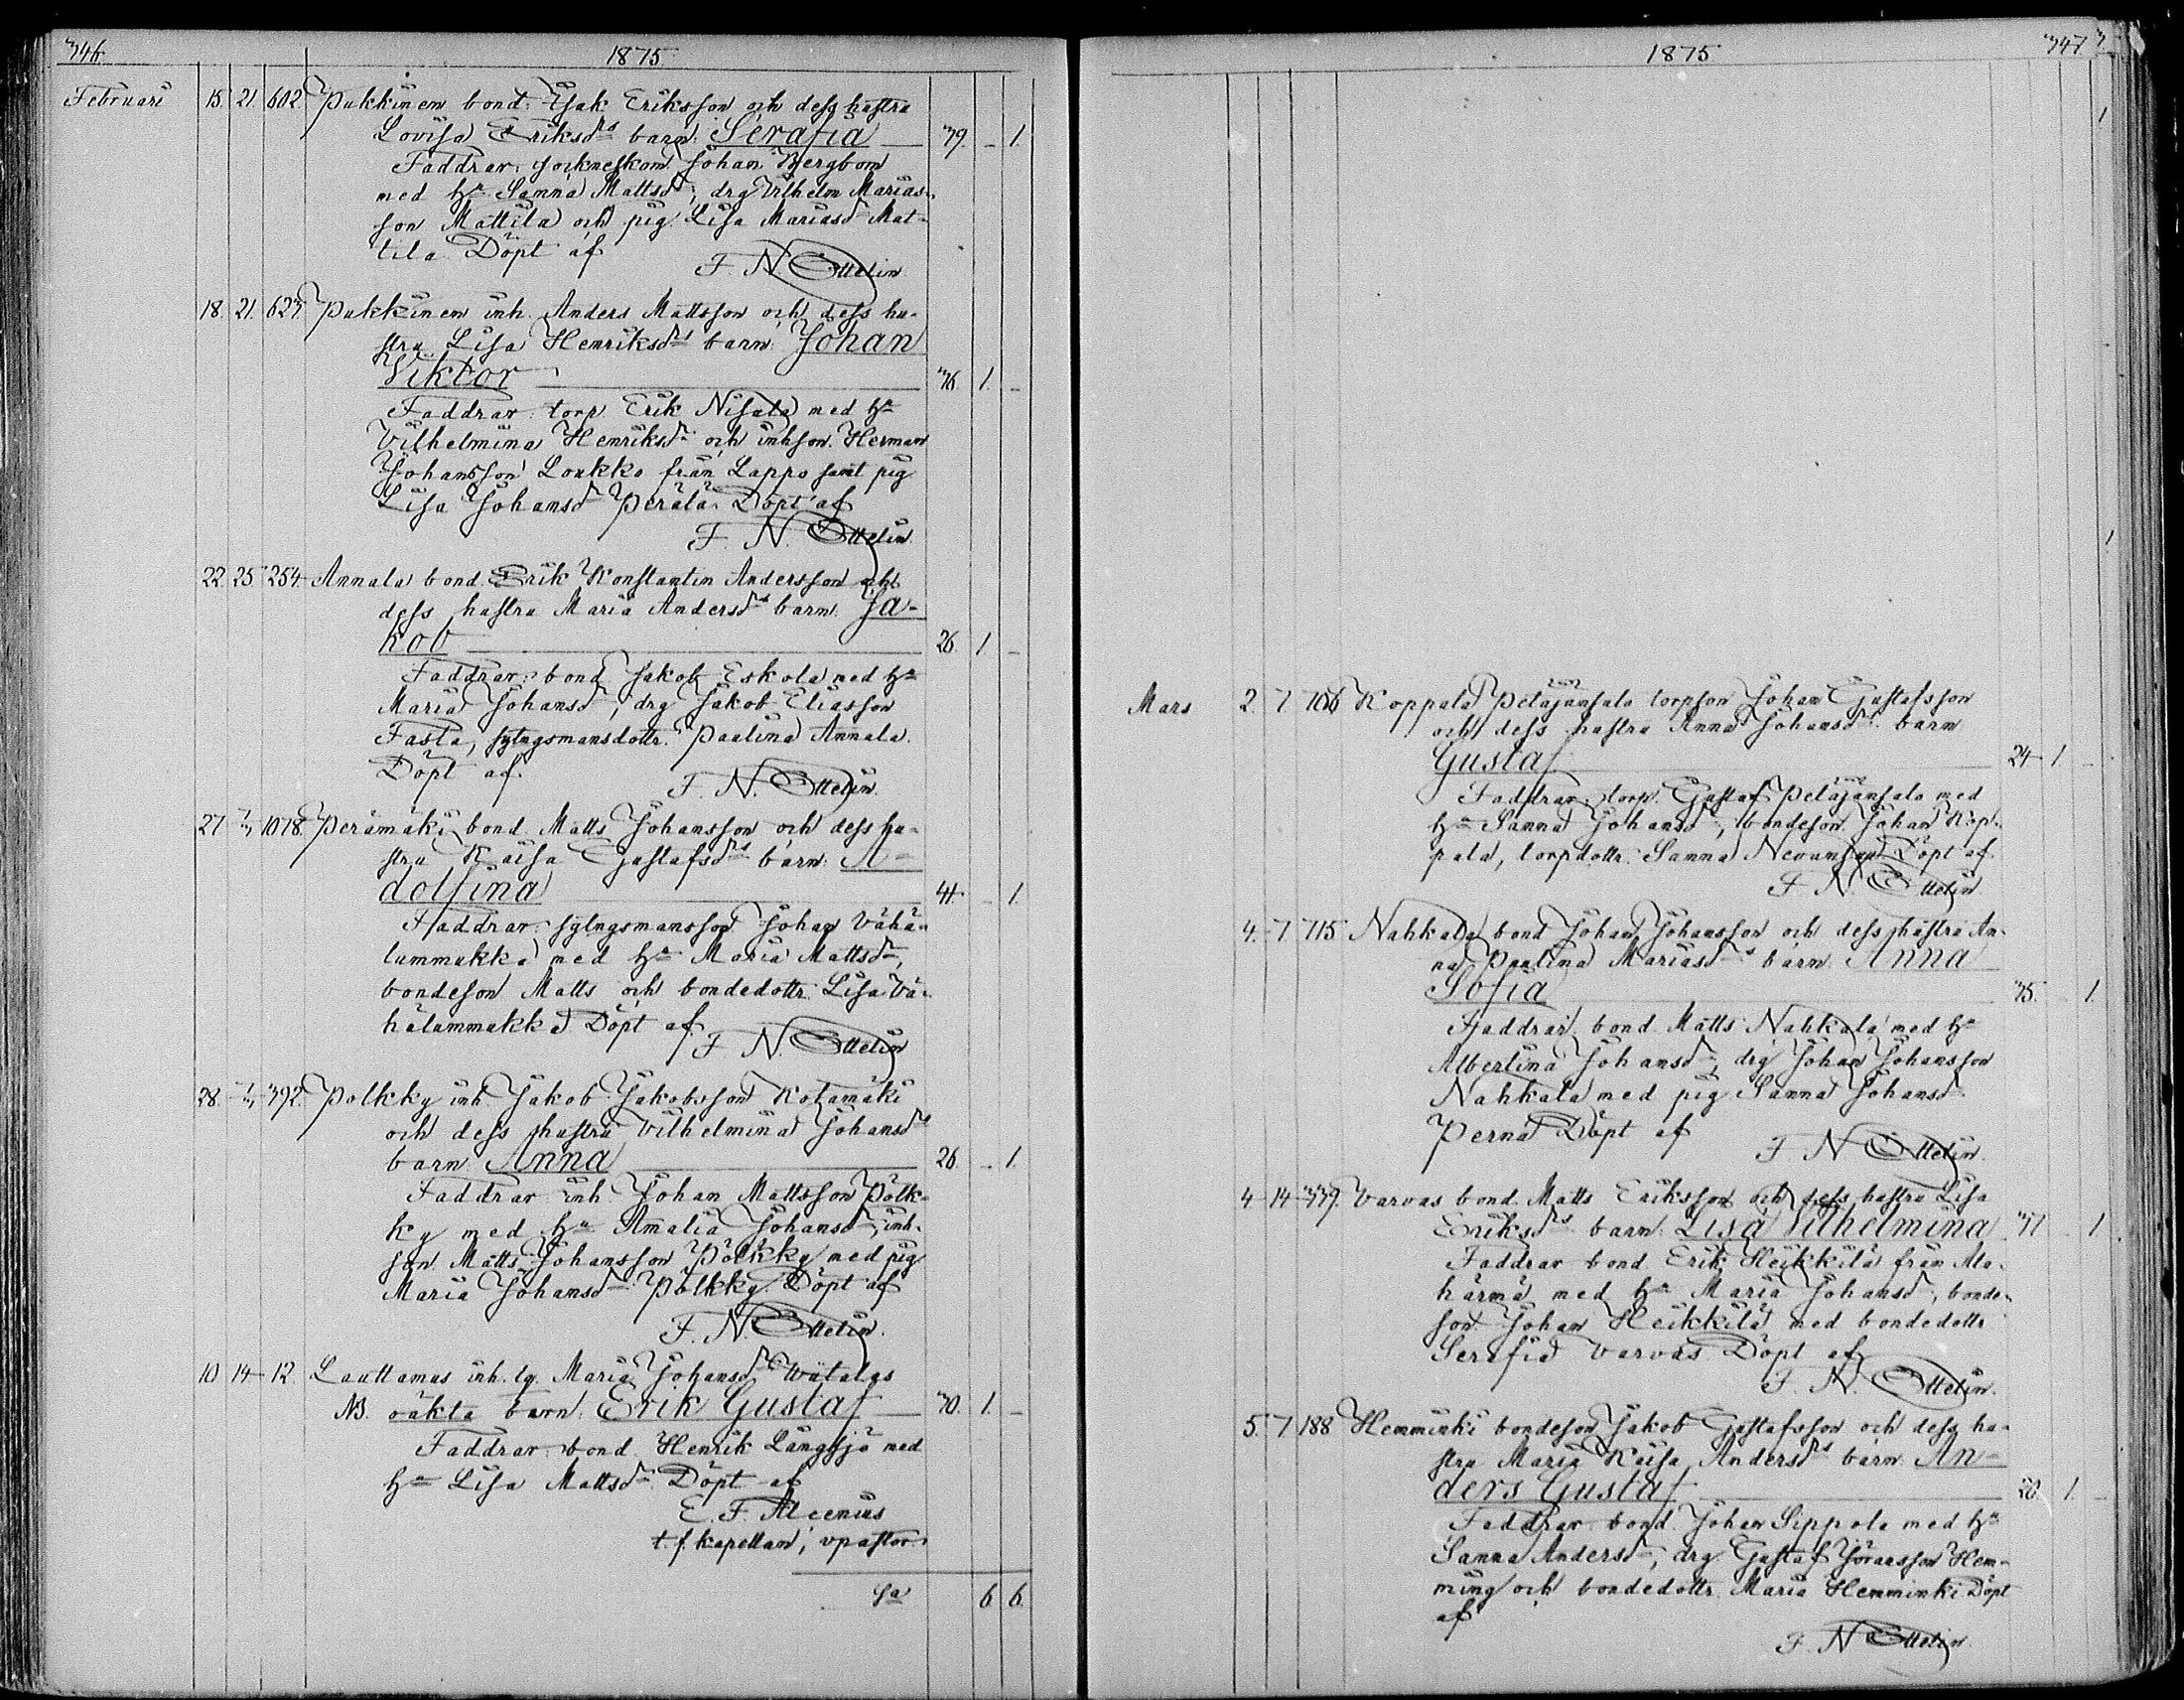 346.
1875
Februari 15. 21. 602. Pukkinen bond. Isak Eriksson och dess hustru
Lovisa Eriksdrs barn: Serafia 39. - 1.
Faddrar: sockneskom. Johan Bergbom
med ha Sanna Mattsdr, drg Vilhelm Marias-
son Mattila och pig. Lisa Mariasdr Mat-
tila Döpt af
F. N. Ottelin
18. 21. 623. Pukkinen inh. Anders Mattsson och dess hu-
stru Lisa Henriksdrs barn: Johan
Viktor 36. 1. -
Faddrar: torp. Erik Nisula med ha
Vilhelmina Henriksdr och inhson. Herman
Johansson Loukko från Lappo samt pig
Lisa Johansdr Perälä. Döpt af
F. N. Ottelin
22. 25. 254. Annala bond. Erik Konstantin Andersson och
dess hustru Maria Andersdrs barn: Ja-
kob 26. 1. -
Faddrar: bond Jakob Eskola med ha
Maria Johansdr, drg Jakob Eliasson
Fasta, sytngsmansdottr. Paulina Annala.
Döpt af.
F. N. Ottelin.
27. 1078. Perämäki bond. Matts Johansson och dess hu-
stru Kaisa Gustafsdrs barn: A-
dolfina 41. - 1.
Faddrar: sytngsmansson Johan Vähä-
lummukka med ha Maria Mattsdr,
bondeson Matts och bondedottr. Lisa Vä-
hälummukka Döpt af.
F. N. Ottelin
28. 392. Polkky inh. Jakob Jakobsson Kotamäki
och dess hustru Vilhelmina Johansdrs
barn: Anna 26. - 1.
Faddrar inh Johan Mattsson Pölk-
ky med ha Amalia Johansdr, inh-
son Matts Johansson Pölkky med pig
Maria Johansdr Pölkky. Döpt af
F. N. Ottelin.
10 14 12. Lauttamus inh. lg. Maria Johansdr
NB. oäkta barn: Erik Gustaf 30. 1. -
Faddrar: bond Henrik Långsjö med
ha Lisa Mattsdr. Döpt af
E. F. Alcenius
t. f. kapellan, vpastor
Sa 6. 6.
347.
1875
Mars 2. 7. Koppala Petäjänsalo torpson Johan Gustafsson
och dess hustru Anna Johansdrs barn
Gustaf 24 1. -
Faddrar: torp. Gustaf Petäjänsalo med
ha Sanna Johansdr, bondeson Johan Kop-
pala, torpdottr. Sanna Döpt af
F. N. Ottelin
4. 7. 715. Nahkala bond Johan Johansson och dess hustru An-
na Paulina Mariasdrs barn: Anna
Sofia 35. - 1.
Faddrar bond. Matts Nahkala med ha
Albertina Johansdr, drg Johan Johansson
Nahkala med pig Sanna Johansdr
Perna Döpt af
F. N. Ottelin.
4 14 339. Varvas bond. Matts Eriksson och dess hustru Lisa
Eriksdrs barn: Lisa Vilhelmina 37 - 1.
Faddrar bond. Erik Heikkilä från Ala-
härmä med ha Maria Johansdr, bonde-
son Johan Heikkilä med bondedottr
Serafia Varvas. Döpt af
F. N. Ottelin.
5. 7 188 Hemminki bondeson Jakob Gustafsson och dess hu-
stru Maria Kaisa Andersdrs barn: An-
ders Gustaf 20. 1. -
Faddrar bond. Johan Sippola med ha
Sanna Andersdr, drg. Gustaf Göransson Hem-
ming och bondedottr. Maria Hemminki Döpt
af
F. N Ottelin